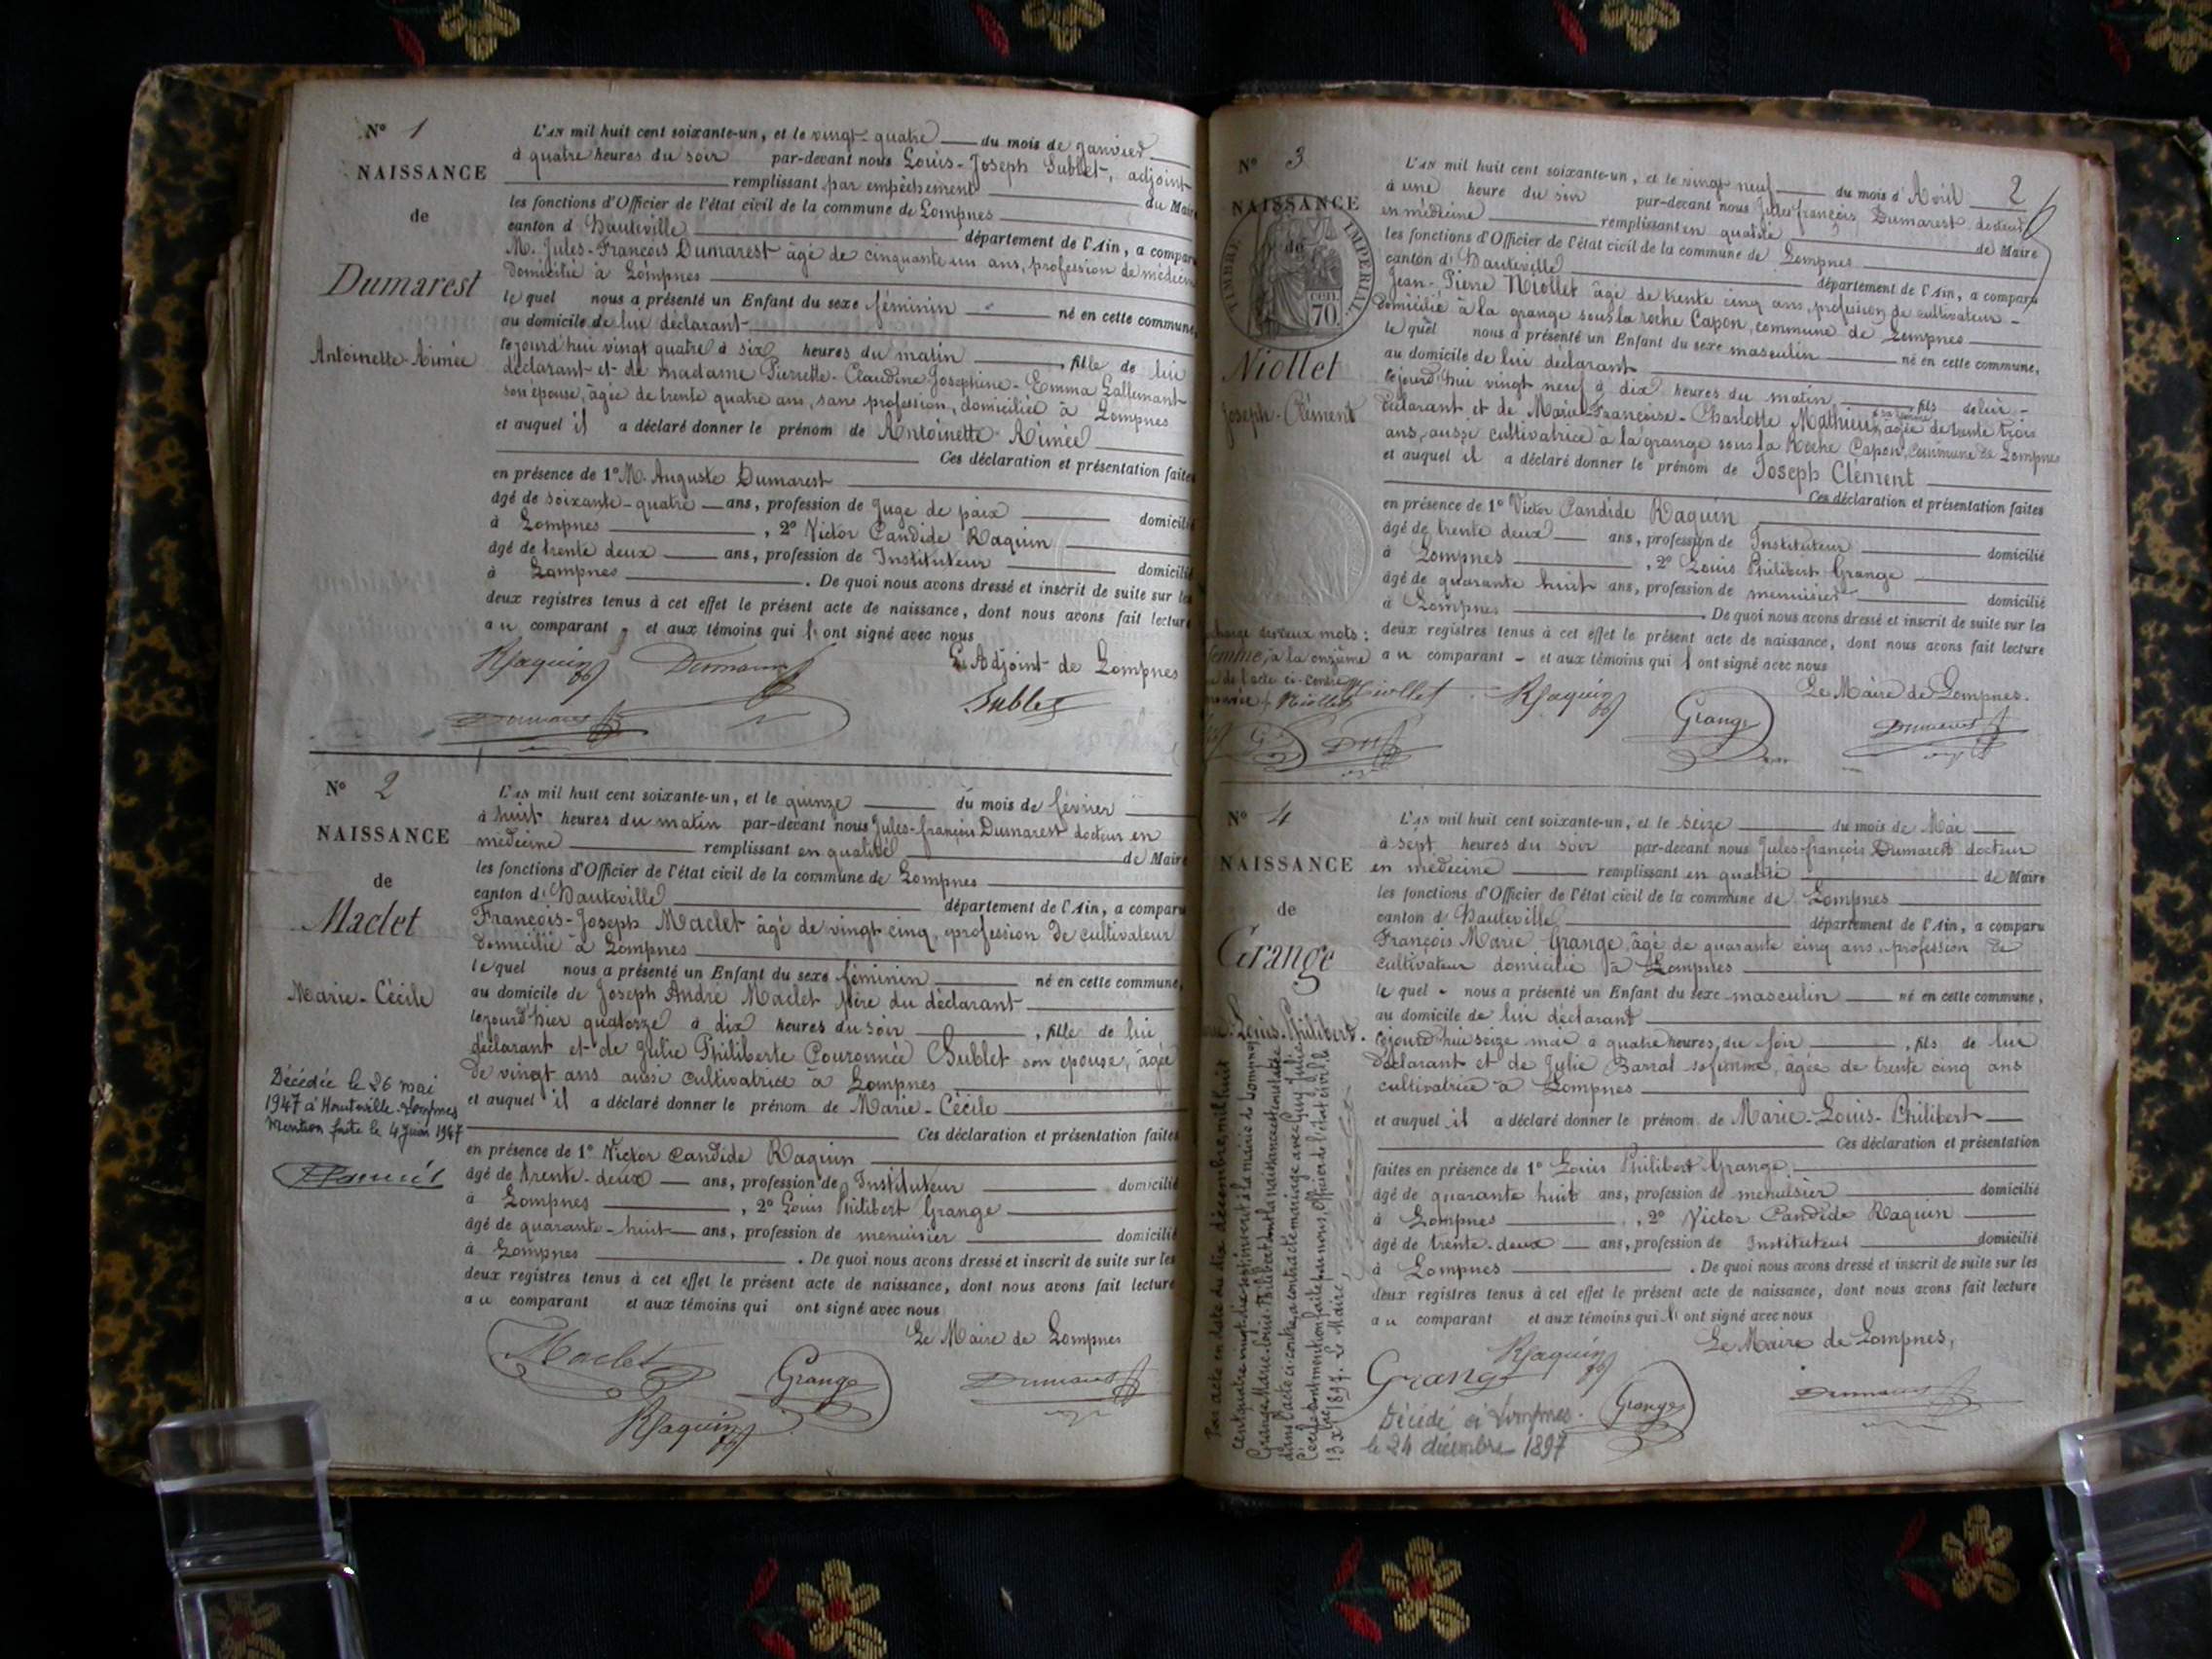 N° 1
NAISSANCE
de
Dumarest
Antoinette-Aimée
L'AN mil huit cent soixante-un, et le vingt-quatre du mois de Janvier
à quatre heures du soir par-devant nous Louis-Joseph Sublet, adjoint
remplissant par empêchement du Maire
les fonctions d'Officier de l'état civil de la commune de Lompnes
canton d'Hauteville département de l'Ain, a comparu
M. Jules-François Dumarest âgé de cinquante un ans, profession de médecin
domicilié à Lompnes
le quel nous a présenté un Enfant du sexe féminin né en cette commune,
au domicile de lui déclarant
cejourd'hui vingt quatre à six heures du matin, fille de lui
déclarant et de madame Pierrette-Claudine-Josephine-Emma Lallemant
son épouse, âgée de trente quatre ans, sans profession, domiciliée à Lompnes
et auquel il a déclaré donner le prénom de Antoinette Aimée
Ces déclaration et présentation faites
en présence de 1° M. Auguste Dumarest
âgé de soixante-quatre ans, profession de Juge de paix domicilié
à Lompnes, 2° Victor Candide Raquin
âgé de trente deux ans, profession de Instituteur domicilié
à Lompnes. De quoi nous avons dressé et inscrit de suite sur les
deux registres tenus à cet effet le présent acte de naissance, dont nous avons fait lecture
au comparant et aux témoins qui l'ont signé avec nous
Raquin Dumarest L'Adjoint de Lompnes
Dumarest Sublet
N° 2
NAISSANCE
de
Maclet
Marie-Cécile
Décédée le 26 mai
1947 à Hauteville-Lompnes
Mention faite le 4 Juin 1947
L'AN mil huit cent soixante-un, et le quinze du mois de février
à huit heures du matin par-devant nous Jules-françois Dumarest docteur en
médecine remplissant en qualité de Maire
les fonctions d'Officier de l'état civil de la commune de Lompnes
canton d'Hauteville département de l'Ain, a comparu
François-Joseph Maclet âgé de vingt cinq, profession de cultivateur
domicilié à Lompnes
le quel nous a présenté un Enfant du sexe féminin né en cette commune,
au domicile de Joseph André Maclet père du déclarant
lejourd'hier quatorze à dix heures du soir, fille de lui
déclarant et de Julie Philiberte Couronnée Sublet son épouse, âgée
de vingt ans aussi cultivatrice à Lompnes
et auquel il a déclaré donner le prénom de Marie-Cécile
Ces déclaration et présentation faites
en présence de 1° Victor Candide Raquin
âgé de trente-deux ans, profession de Instituteur domicilié
à Lompnes, 2° Louis Philibert Grange
âgé de quarante-huit ans, profession de menuisier domicilié
à Lompnes. De quoi nous avons dressé et inscrit de suite sur les
deux registres tenus à cet effet le présent acte de naissance, dont nous avons fait lecture
au comparant et aux témoins qui ont signé avec nous
Le Maire de Lompnes
Maclet Grange Dumarest
Raquin
2
N° 3
NAISSANCE
de
TIMBRE IMPERIAL
70 cen.
Niollet
Joseph-Clément
L'AN mil huit cent soixante-un, et le vingt neuf du mois d'Avril
à une heure du soir par-devant nous Jules françois Dumarest docteur
en médecine remplissant en qualité de Maire
les fonctions d'Officier de l'état civil de la commune de Lompnes
canton d'Hauteville département de l'Ain, a comparu
Jean-Pierre Niollet âgé de trente cinq ans, profession de cultivateur
domicilié à la grange sous la roche Capon, commune de Lompnes
le quel nous a présenté un Enfant du sexe masculin né en cette commune,
au domicile de lui déclarant
cejourd'hui vingt neuf à dix heures du matin, fils de lui
déclarant et de Marie Françoise-Charlotte Mathieu, sa femme âgée de trente trois
ans, aussi cultivatrice à la grange sous la Roche Capon, Commune de Lompnes
et auquel il a déclaré donner le prénom de Joseph Clément
Ces déclaration et présentation faites
en présence de 1° Victor Candide Raquin
âgé de trente deux ans, profession de Instituteur domicilié
à Lompnes, 2° Louis Philibert Grange
âgé de quarante huit ans, profession de menuisier domicilié
à Lompnes. De quoi nous avons dressé et inscrit de suite sur les
deux registres tenus à cet effet le présent acte de naissance, dont nous avons fait lecture
au comparant et aux témoins qui l'ont signé avec nous
des deux mots:
femme, à la onzième
de l'acte ci-contre
Niollet
Le Maire de Lompnes.
Niollet Raquin Grange Dumarest
N° 4
NAISSANCE
de
Grange
Louis-Philibert.
L'AN mil huit cent soixante-un, et le seize du mois de Mai
à sept heures du soir par-devant nous Jules-françois Dumarest docteur
en médecine remplissant en qualité de Maire
les fonctions d'Officier de l'état civil de la commune de Lompnes
canton d'Hauteville département de l'Ain, a comparu
François Marie Grange, âgé de quarante cinq ans, profession de
cultivateur domicilié à Lompnes
le quel nous a présenté un Enfant du sexe masculin né en cette commune,
au domicile de lui déclarant
cejourd'hui seize mai à quatre heures, du soir, fils de lui
déclarant et de Julie Barral sa femme, âgée de trente cinq ans
cultivatrice à Lompnes
et auquel il a déclaré donner le prénom de Marie-Louis-Philibert
Ces déclaration et présentation
faites en présence de 1° Louis Philibert Grange,
âgé de quarante huit ans, profession de menuisier domicilié
à Lompnes, 2° Victor Candide Raquin
âgé de trente-deux ans, profession de Instituteur domicilié
à Lompnes. De quoi nous avons dressé et inscrit de suite sur les
deux registres tenus à cet effet le présent acte de naissance, dont nous avons fait lecture
au comparant et aux témoins qui l'ont signé avec nous
Le Maire de Lompnes,
Raquin
Grange Grange Dumarest
Décédé à Lompnes.
le 24 décembre 1897
Par acte en date du dix décembre, mil huit
cent quatre vingt dix sept inscrit à la mairie de Lompnes
Grange Marie-Louis-Philibert dont la naissance est constatée
dans l'acte ci-contre, a contracté mariage avec Guy Julie
Cécile dont mention faite par nous, Officier de l'état civil le
13 Xbre 1897. Le Maire,